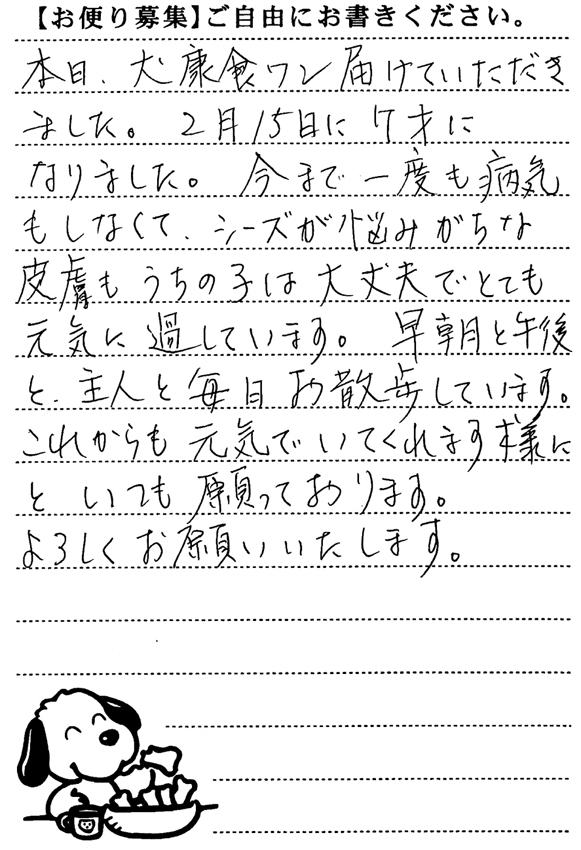 【お便り募集】ご自由にお書きください。
本日、犬康食ワン届けていただき
ました。2月15日に7才に
なりました。今まで一度も病気
もしなくて、シーズが悩みがちな
皮膚もうちの子は大丈夫でとても
元気に過しています。早朝と午後
と、主人と毎日お散歩しています。
これからも元気でいてくれます様に
といつも願っております。
よろしくお願いいたします。